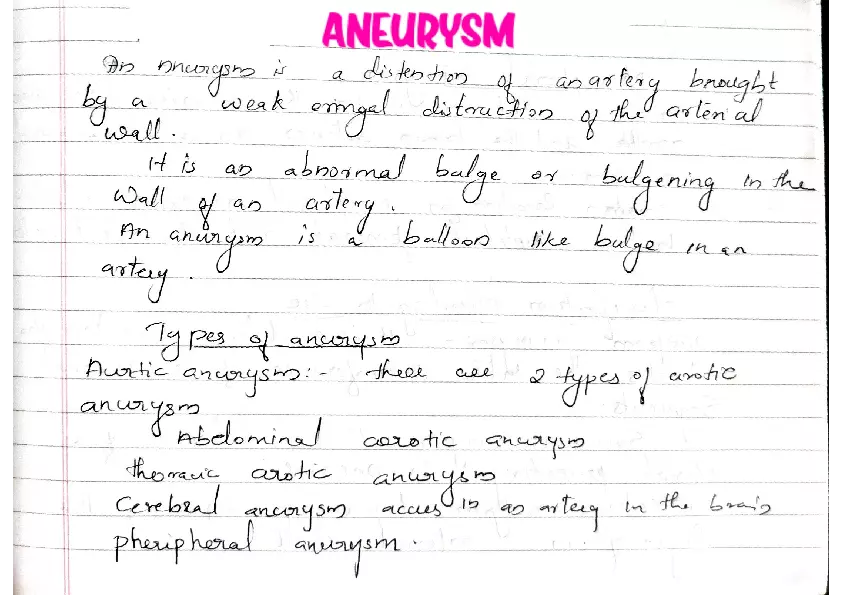 ANEURYSM
An nnurgsm is a distention of an artery brought
by a weak eringal distruction of the arterial
wall.
It is an abnormal bulge or bulgening in the
Wall of an artery.
An anurysm is a balloon like bulge in an
artery.
Types of anurysm
Aurtic anurysm:- there are 2 types of arotic
anurysm
Abdominal aorotic anurysm
thoracic arotic anurysm
Cerebral anurysm accurs in an artery in the brain
pheripheral anurysm.